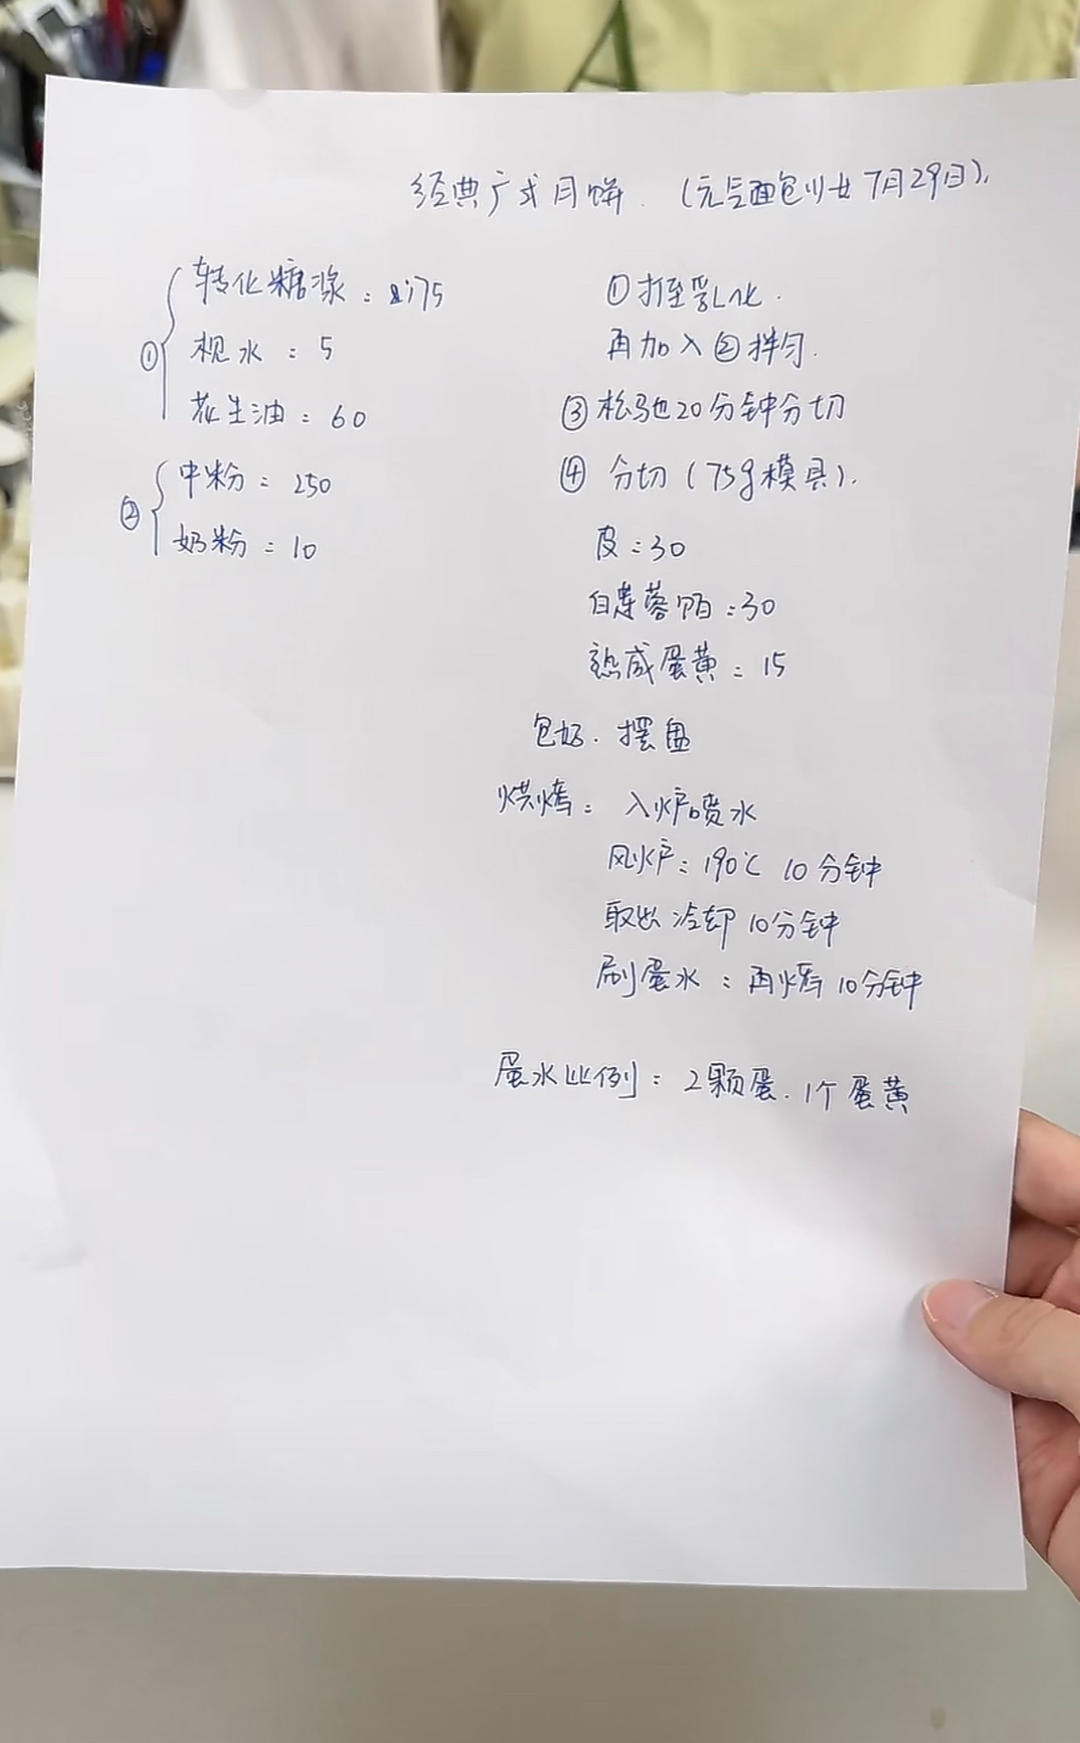 经典广式月饼. (元气面包少女 7月29日).
① 转化糖浆: 175
枧水: 5
花生油: 60
② 中粉: 250
奶粉: 10
①打至乳化.
再加入②拌匀.
③松弛20分钟分切
④ 分切 (75g模具).
皮: 30
白莲蓉馅: 30
熟咸蛋黄: 15
包好. 摆盘
烘烤: 入炉喷水
风炉: 190℃ 10分钟
取出冷却10分钟
刷蛋水: 再烤10分钟
蛋水比例: 2颗蛋. 1个蛋黄